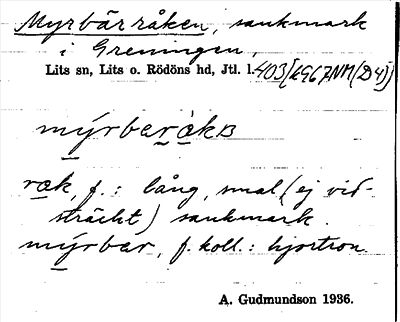 Myrbärråken, sankmark
i Greningen,
Lits sn, Lits o. Rödöns hd, Jtl. l. 403
mýrberàkв
ræk, f.: lång, smal (ej vid-
sträckt) sankmark.
mýrber, f. koll.: hjortron.
A. Gudmundson 1936.